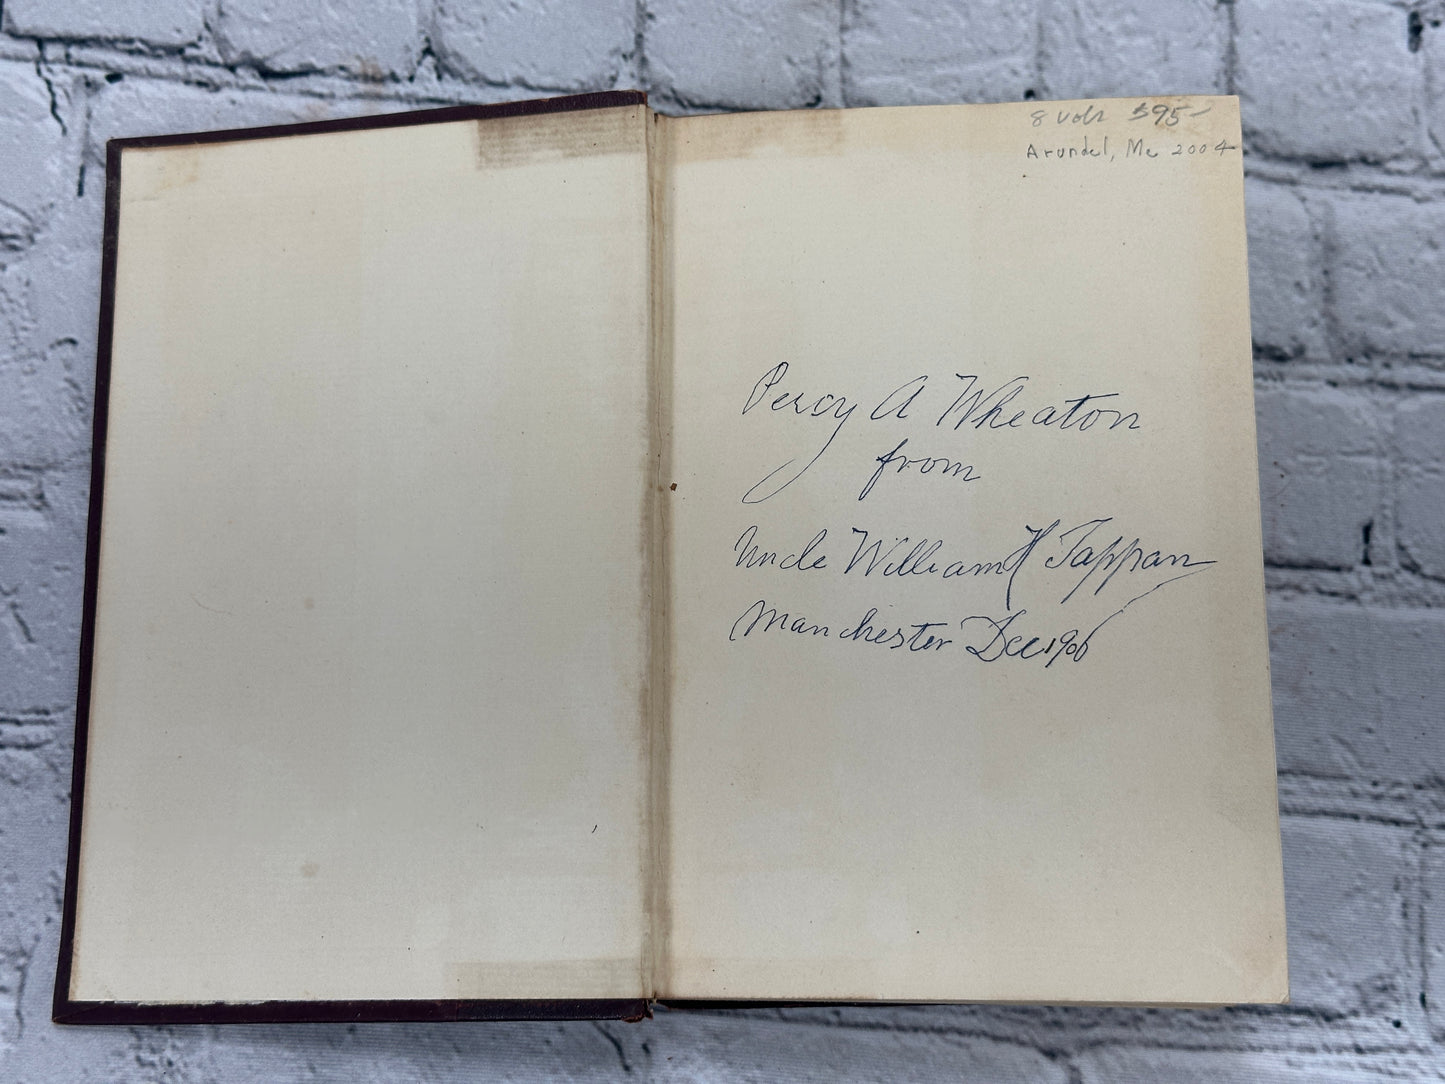 8 vols $95-
Arundel, Me 2004
Percy A Wheaton
from
Uncle William H Tappan
Manchester Dec 1906